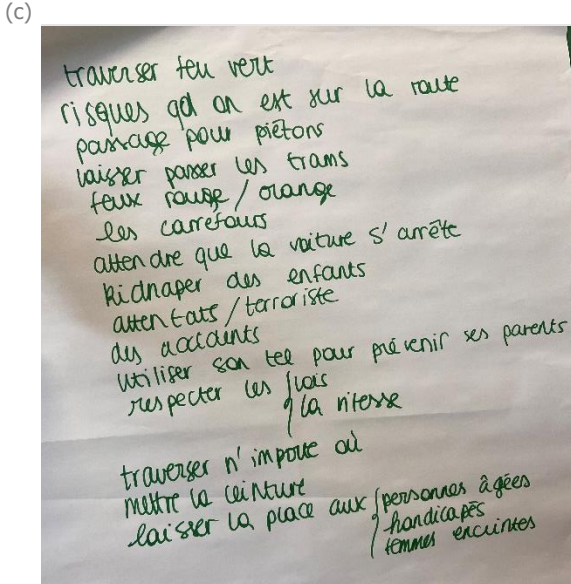 (c)
traverser feu vert
risques qd on est sur la route
passage pour piétons
laisser passer les trams
feux rouge / orange
les carrefours
attendre que la voiture s'arrête
Kidnaper des enfants
attentats / terroriste
des accidents
utiliser son tel pour prévenir ses parents
respecter les { lois
la vitesse
traverser n'importe où
mettre la ceinture
laisser la place aux { personnes âgées
handicapés
femmes enceintes